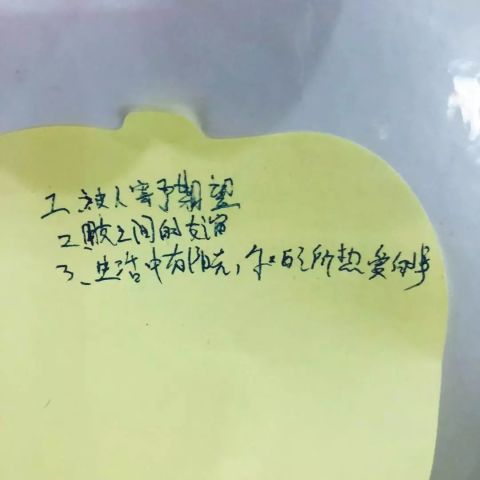 1、被人寄予期望
2、朋友之间的友谊
3、生活中有阳光,有自己所热爱的事